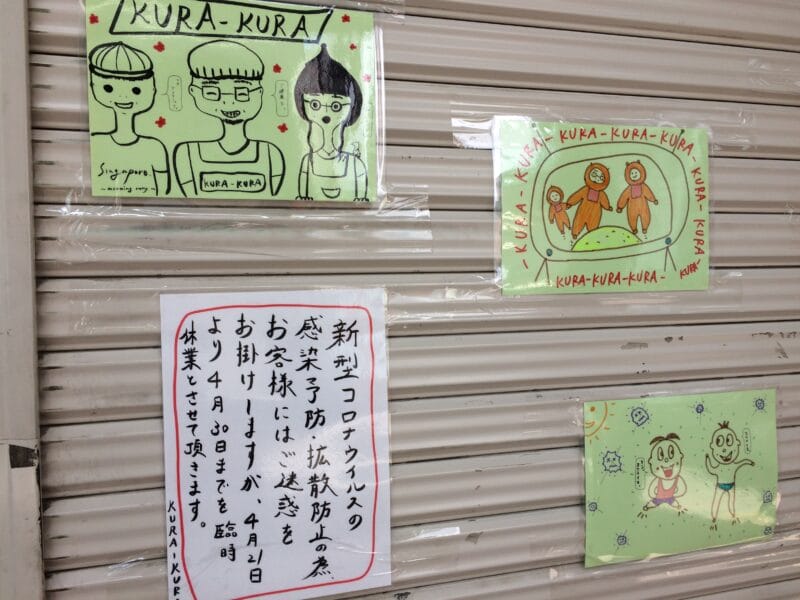 KURA-KURA
Singapore
~morning song~
KURA-KURA
-KURA-KURA-KURA-KURA-KURA-KURA-
KURA-KURA-KURA-
KURA-
新型コロナウイルスの
感染予防・拡散防止の為、
お客様にはご迷惑を
お掛けしますが、4月21日
より4月30日までを臨時
休業とさせて頂きます。
KURA-KUR